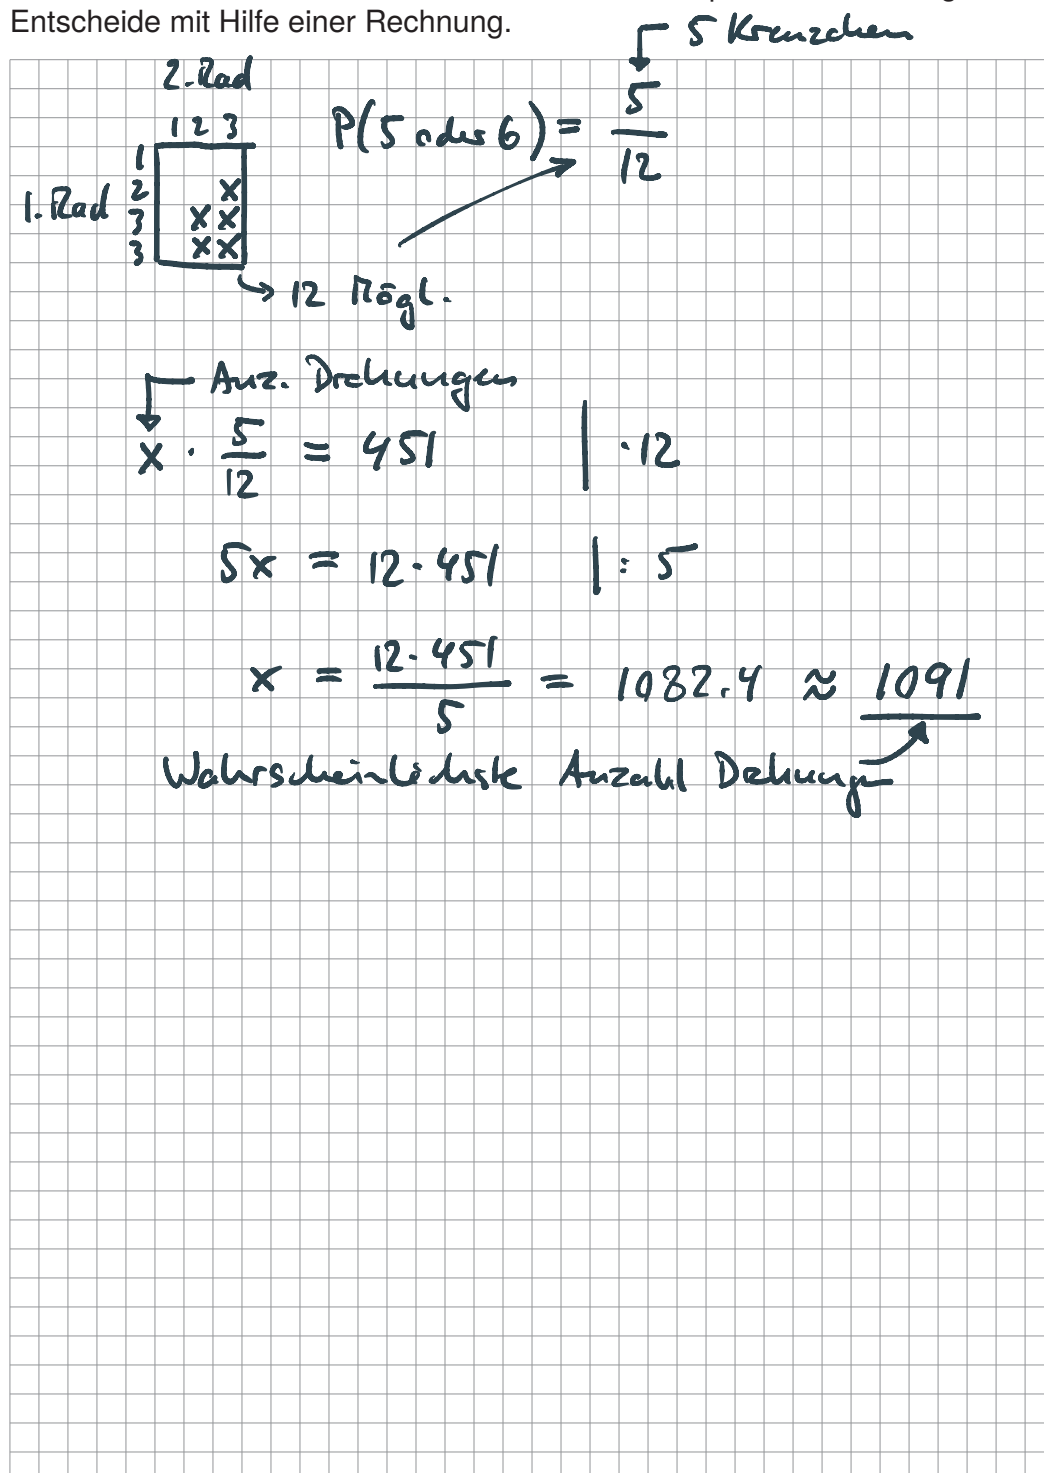 Entscheide mit Hilfe einer Rechnung.
5 Kreuzchen
2. Rad
1 2 3
P(5 oder 6) = 5/12
1
2 x
1. Rad
3 x x
3 x x
→ 12 Mögl.
Anz. Drehungen
x · 5/12 = 451 | · 12
5x = 12 · 451 | : 5
x = 12 · 451 / 5 = 1082.4 ≈ 1091
Wahrscheinlichste Anzahl Drehung